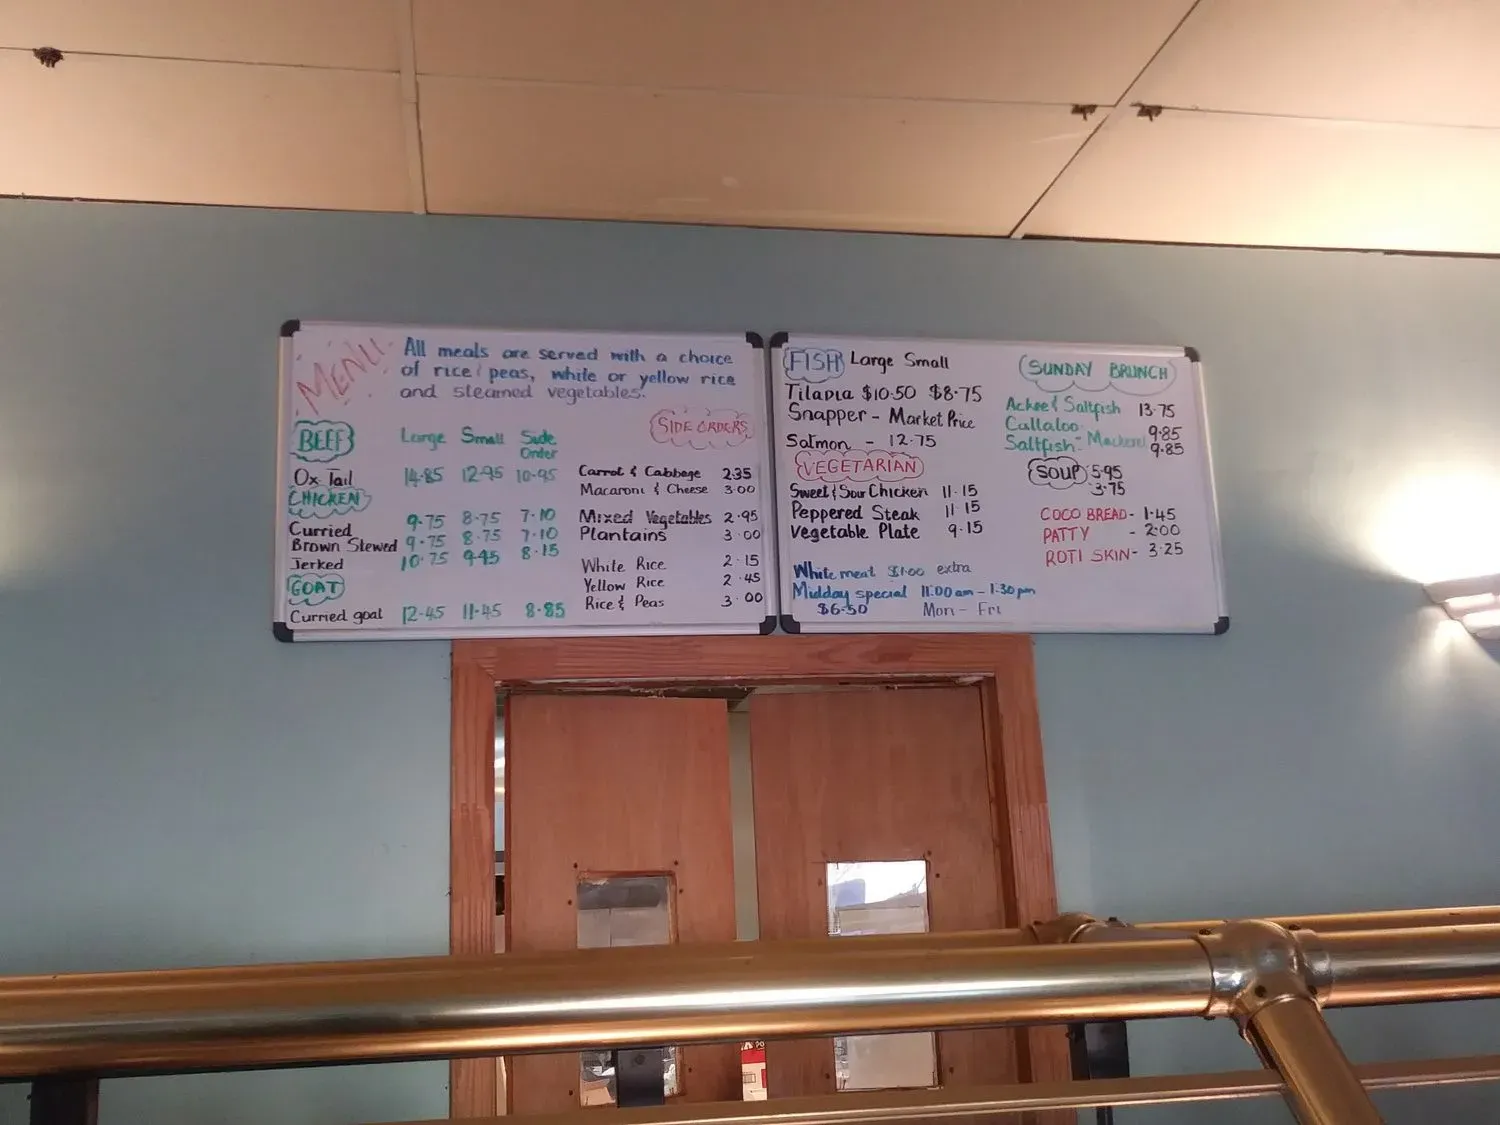 MENU
All meals are served with a choice
of rice & peas, white or yellow rice
and steamed vegetables.
BEEF Large Small Side Order
Ox Tail 14.85 12.95 10.95
CHICKEN
Curried 9.75 8.75 7.10
Brown Stewed 9.75 8.75 7.10
Jerked 10.75 9.45 8.15
GOAT
Curried goat 12.45 11.45 8.85
SIDE ORDERS
Carrot & Cabbage 2.35
Macaroni & Cheese 3.00
Mixed Vegetables 2.95
Plantains 3.00
White Rice 2.15
Yellow Rice 2.45
Rice & Peas 3.00
FISH Large Small
Tilapia $10.50 $8.75
Snapper - Market Price
Salmon - 12.75
VEGETARIAN
Sweet & Sour Chicken 11.15
Peppered Steak 11.15
Vegetable Plate 9.15
White meat $1.00 extra
Midday special 11:00 am - 1:30 pm
$6.50 Mon - Fri
SUNDAY BRUNCH
Ackee & Saltfish 13.75
Callaloo 9.85
Saltfish - Mackerel 9.85
SOUP 5.95
3.75
COCO BREAD - 1.45
PATTY - 2.00
ROTI SKIN - 3.25